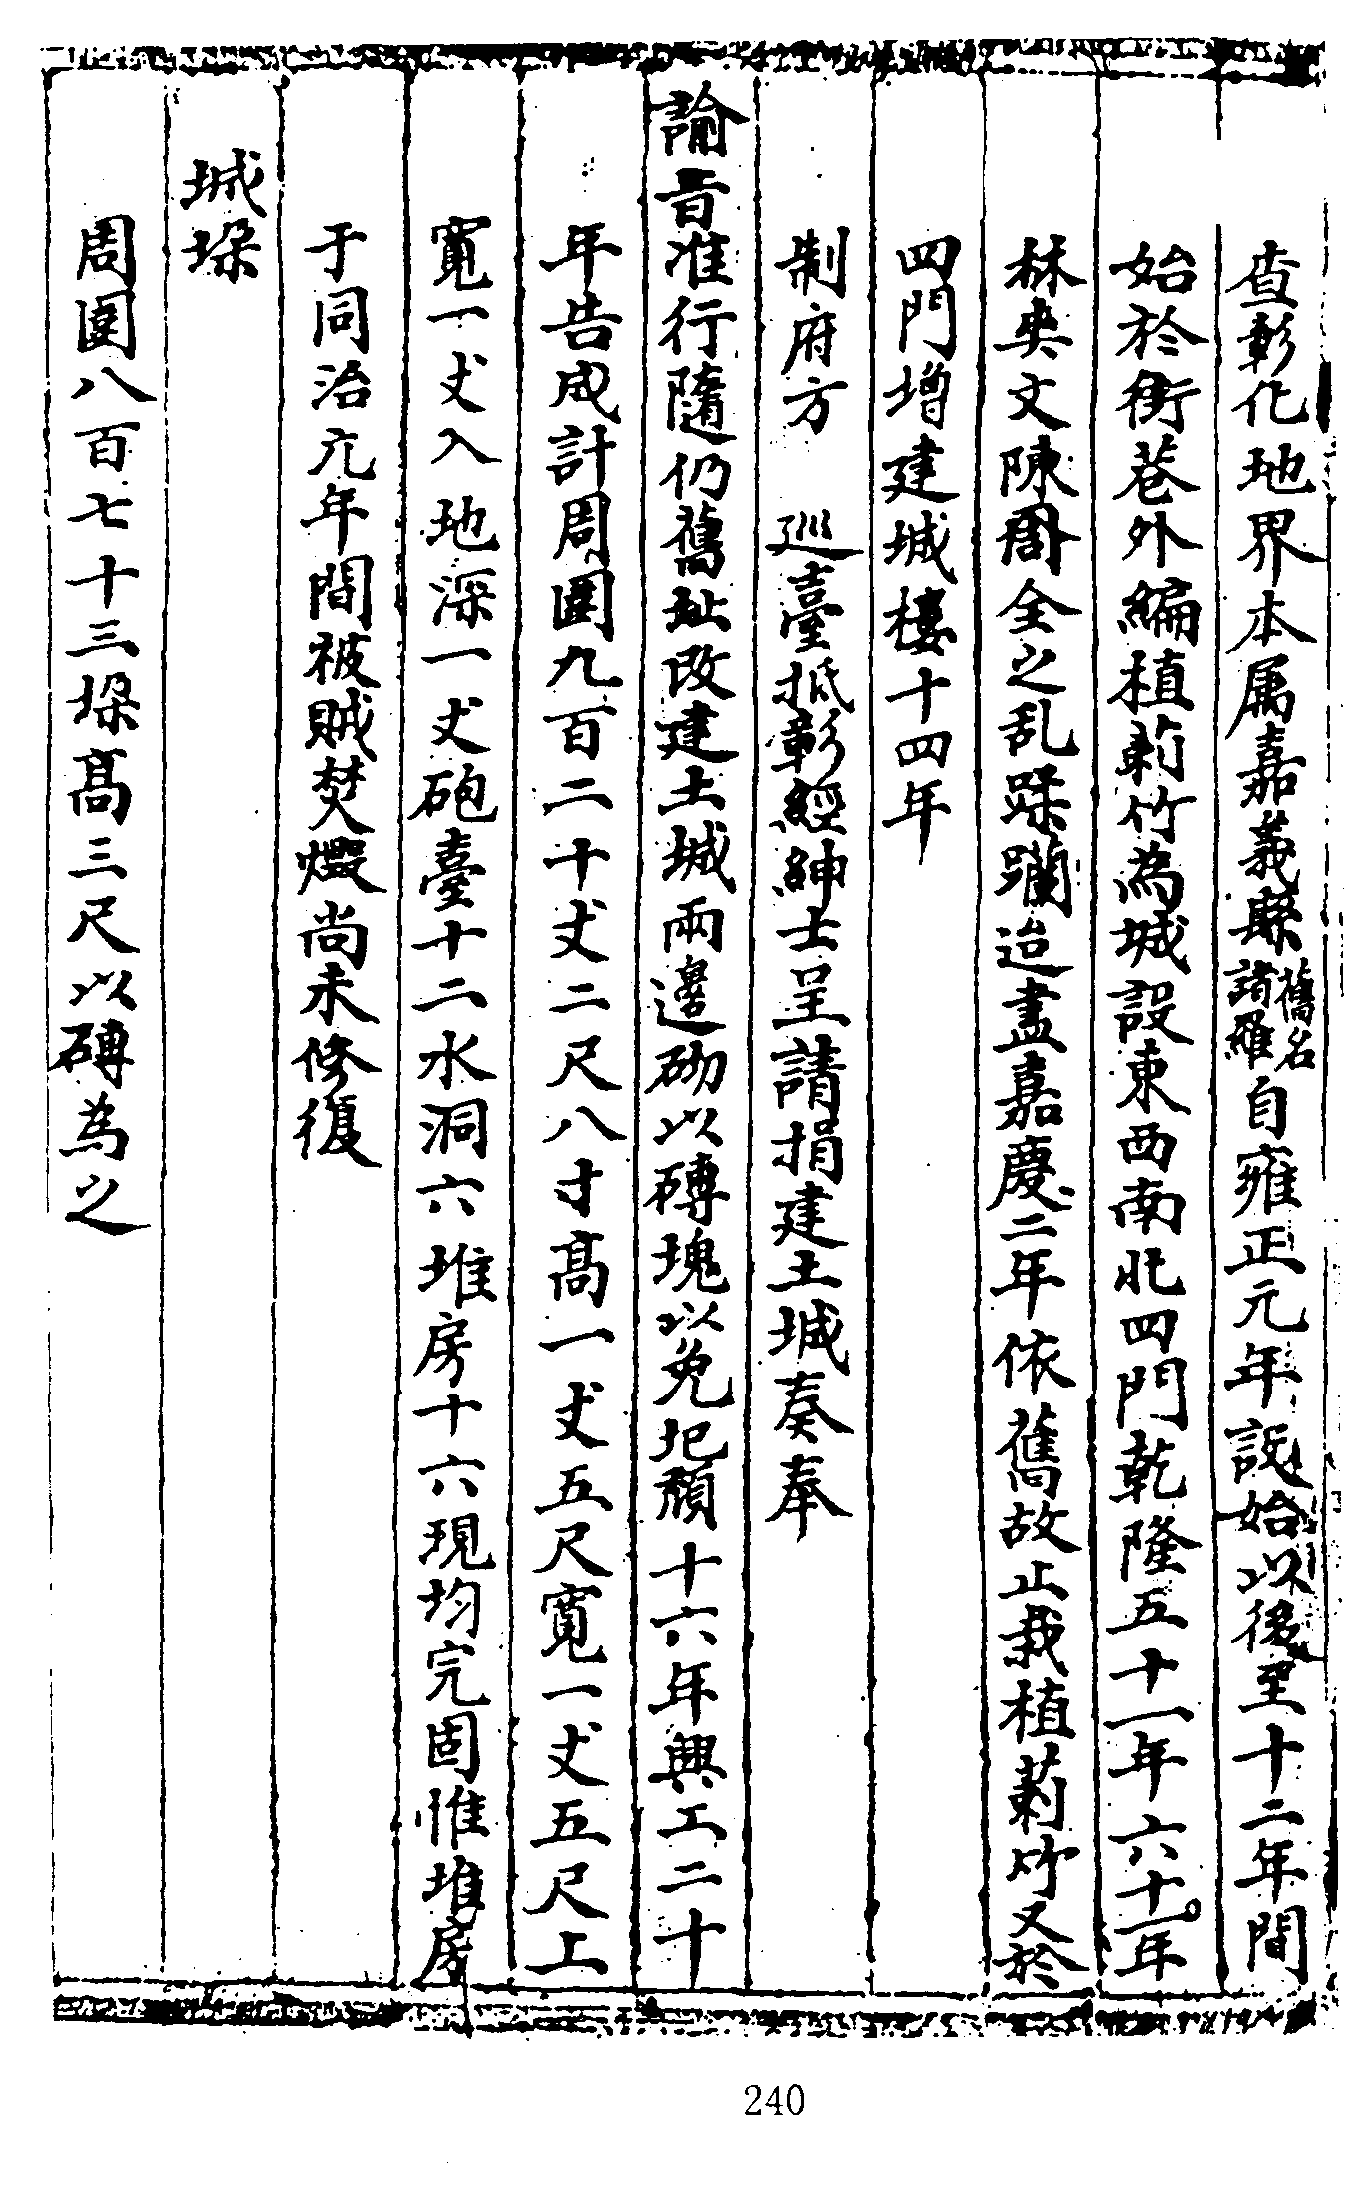 查彰化地界本属嘉義縣舊名諸羅自雍正元年設始以後至十二年間
始於街巷外編植莿竹為城設東西南北四門乾隆五十一年六十年
林爽文陳周全之乱蹂躪迨盡嘉慶二年依舊故止栽植莿竹又於
四門增建城樓十四年
制府方 巡臺抵彰經紳士呈請捐建土城奏奉
諭旨准行隨仍舊址改建土城兩邊砌以磚塊以免圮頹十六年興工二十
年告成計周圍九百二十丈二尺八寸高一丈五尺寬一丈五尺上
寬一丈入地深一丈砲臺十二水洞六堆房十六現均完固惟堆房
于同治元年間被賊焚燬尚未修復
城垛
周圍八百七十三垛高三尺以磚為之
240